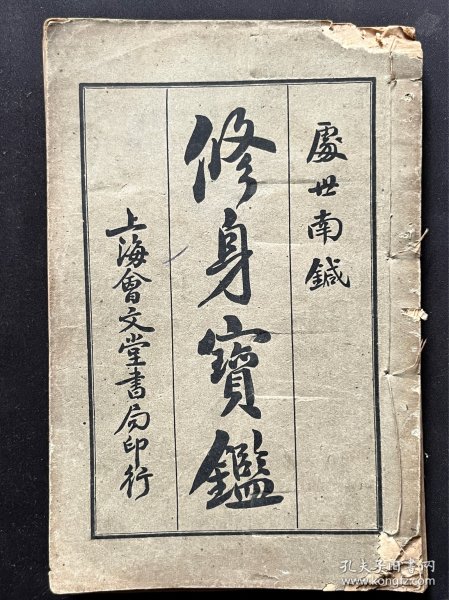 處世南鍼
修身寶鑑
上海會文堂書局印行
孔夫子旧书网
www.kongfz.com